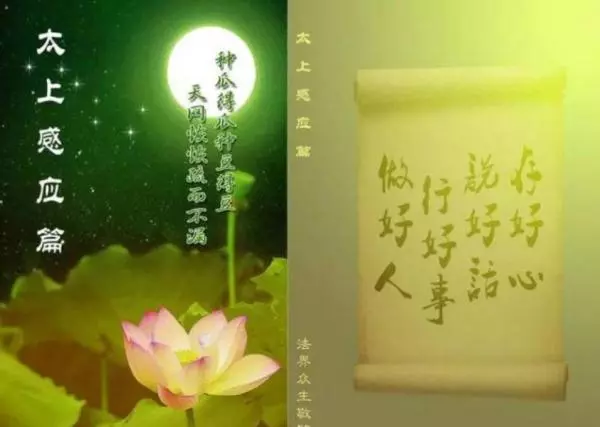 太上感应篇
种瓜得瓜种豆得豆
天网恢恢疏而不漏
太上感应篇
法界众生敬
存好心
說好話
行好事
做好人